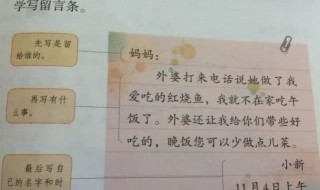 学写留言条。
先写是留
给谁的。
妈妈：
外婆打来电话说她做了我
爱吃的红烧鱼，我就不在家吃午
饭了。外婆还让我给你们带些好
吃的，晚饭您可以少做点儿菜。
再写有什
么事。
小新
11月4日上午
最后写自
己的名字和时